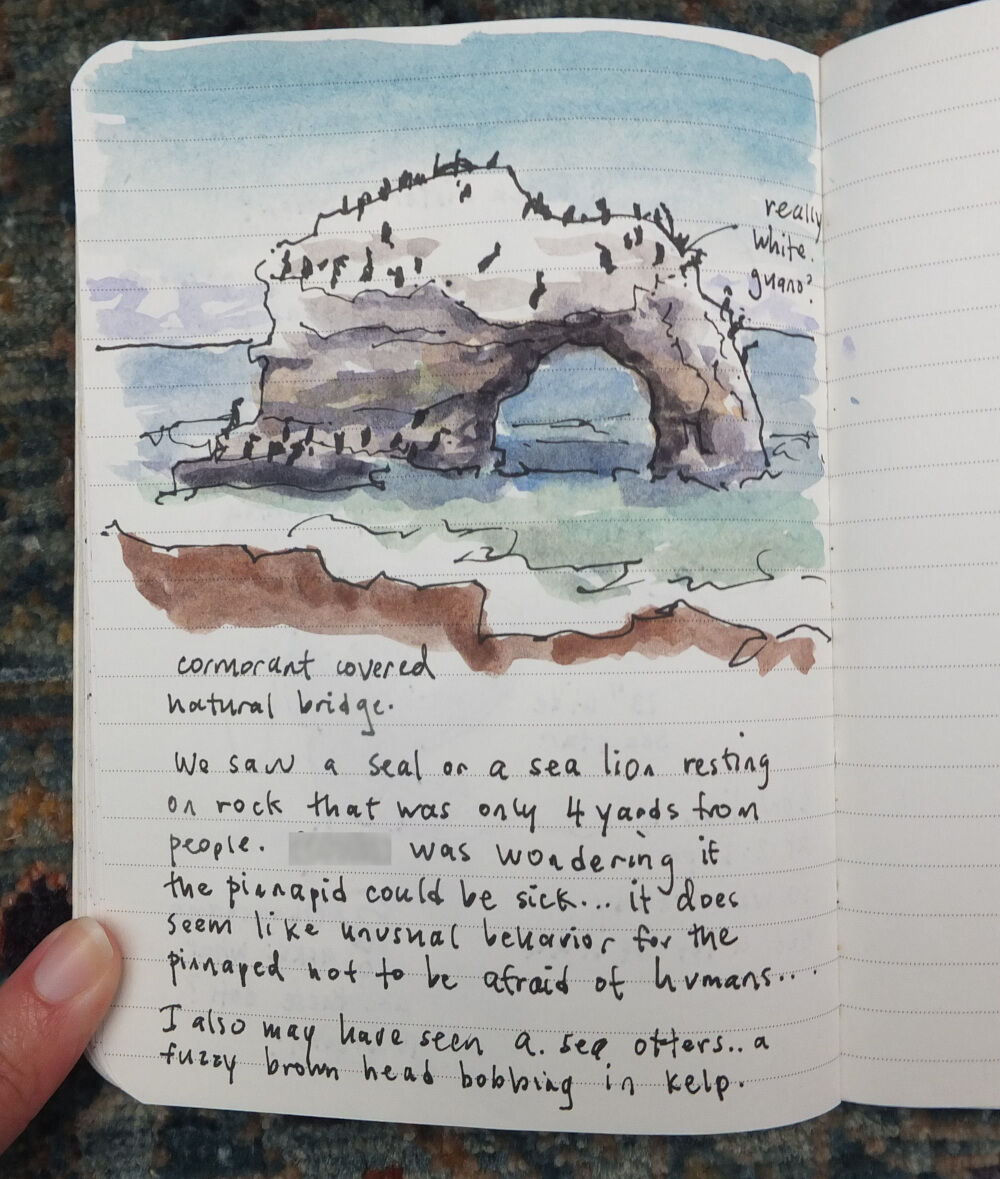 really
white.
guano?
cormorant covered
natural bridge.
We saw a seal or a sea lion resting
on rock that was only 4 yards from
people. was wondering if
the pinnapid could be sick... it does
seem like unusual behavior for the
pinnaped not to be afraid of humans...
I also may have seen a. sea otters.. a
fuzzy brown head bobbing in kelp.